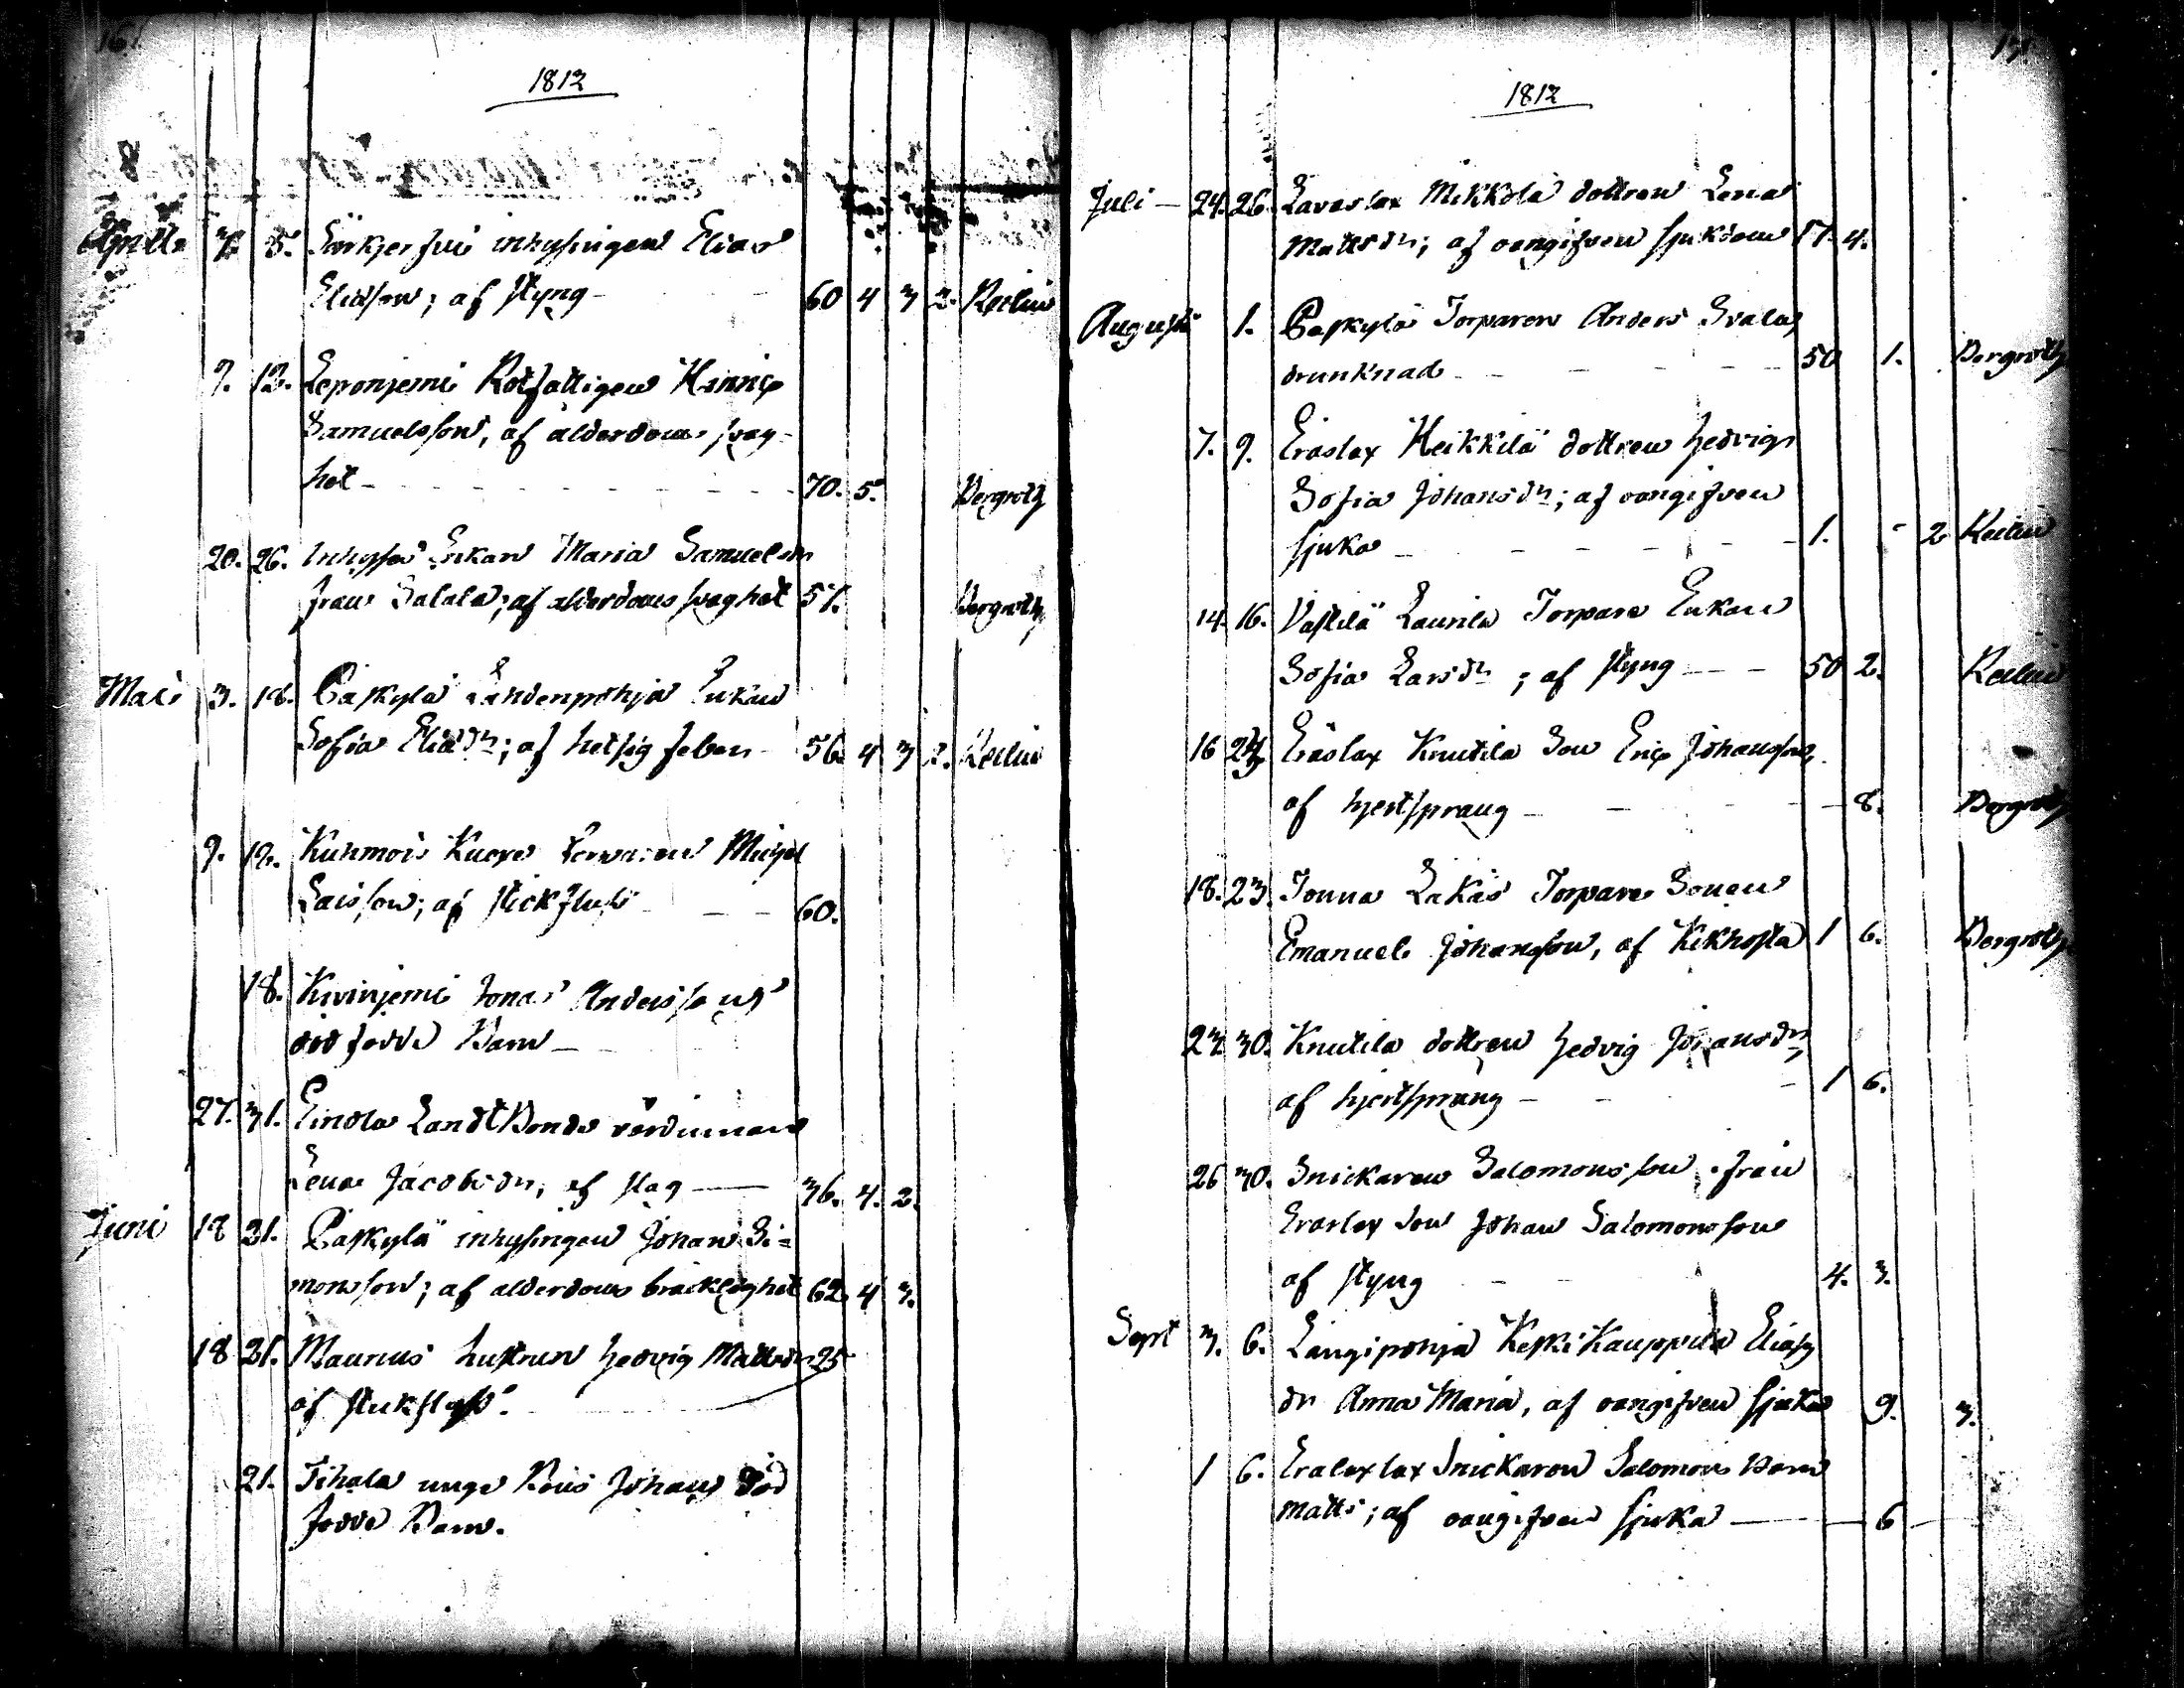 161.
1812
Aprill 3. 5. Särkjerfwi inhysingen Elias
Eliasson; af styng 60 4 3 2. Reilin
9. 12. Leponjemi Rotfattigen Hinric
Samuelsson, af ålderdoms svag-
het 70. 5. Bergroth
20. 26. Inhyses Enkan Maria Samuelsdr
från Salala; af ålderdoms svaghet 57. Bergroth
Maii 3. 18. Päskylä Lahdenpohja Enkan
Sofia Eliædr; af hetsig feber 56. 4 3 2. Reilin
9. 12. Kuhmois Michel
Larsson; af stickfluss 60.
18. Kivinjemi Jonas Anderssons
död födde Barn
27. 31. Einola Landt Bonde värdinnan
Lena Jacobsdr, af slag 36. 4. 2.
Juni 18 21. Päskylä inhysingen Johan Si=
monsson; af ålderdoms bräcklighet 62. 4 3.
18 21. Maunus hustrun Hedvig Mattsdr 25
af stickfluss.
21. Tihala unge Johans död
födde Barn.
1812
Juli 24. 26. Lavaslax Mikkola dottren Lena
Mattsdr; af oangifven sjukdom 17. 4.
Augusti 1. Päskylä Torparen Anders
drunknad 50 1. Bergroth
7. 9. Eräslax Heikkilä dottren Hedvig
Sofia Johansdr; af oangifven
sjuka 1. - 2 Reilin
14. 16. Västilä Laurila Torpare Enkan
Sofia Larsdr; af styng 50 2. Reilin
16 23 Eräslax Knutila Son Eric Johansson,
af hjertsprång 8. Bergroth
18. 23 Torpare Sonen
Emanuel Johansson, af Kikhosta 1 6. Bergroth
23 30. Knutila dottren Hedvig Johansdr,
af hjertsprång 1 6.
26 30. Snickaren Salomonsson från
Eräslax Son Johan Salomonsson
af styng 4. 3.
Sept 3. 6. Längipohja Keski Kauppila Eliæ
dr Anna Maria, af oangifven sjuka 9. 3.
1 6. Snickaren Salomons Barn
Matts; af oangifven sjuka 6